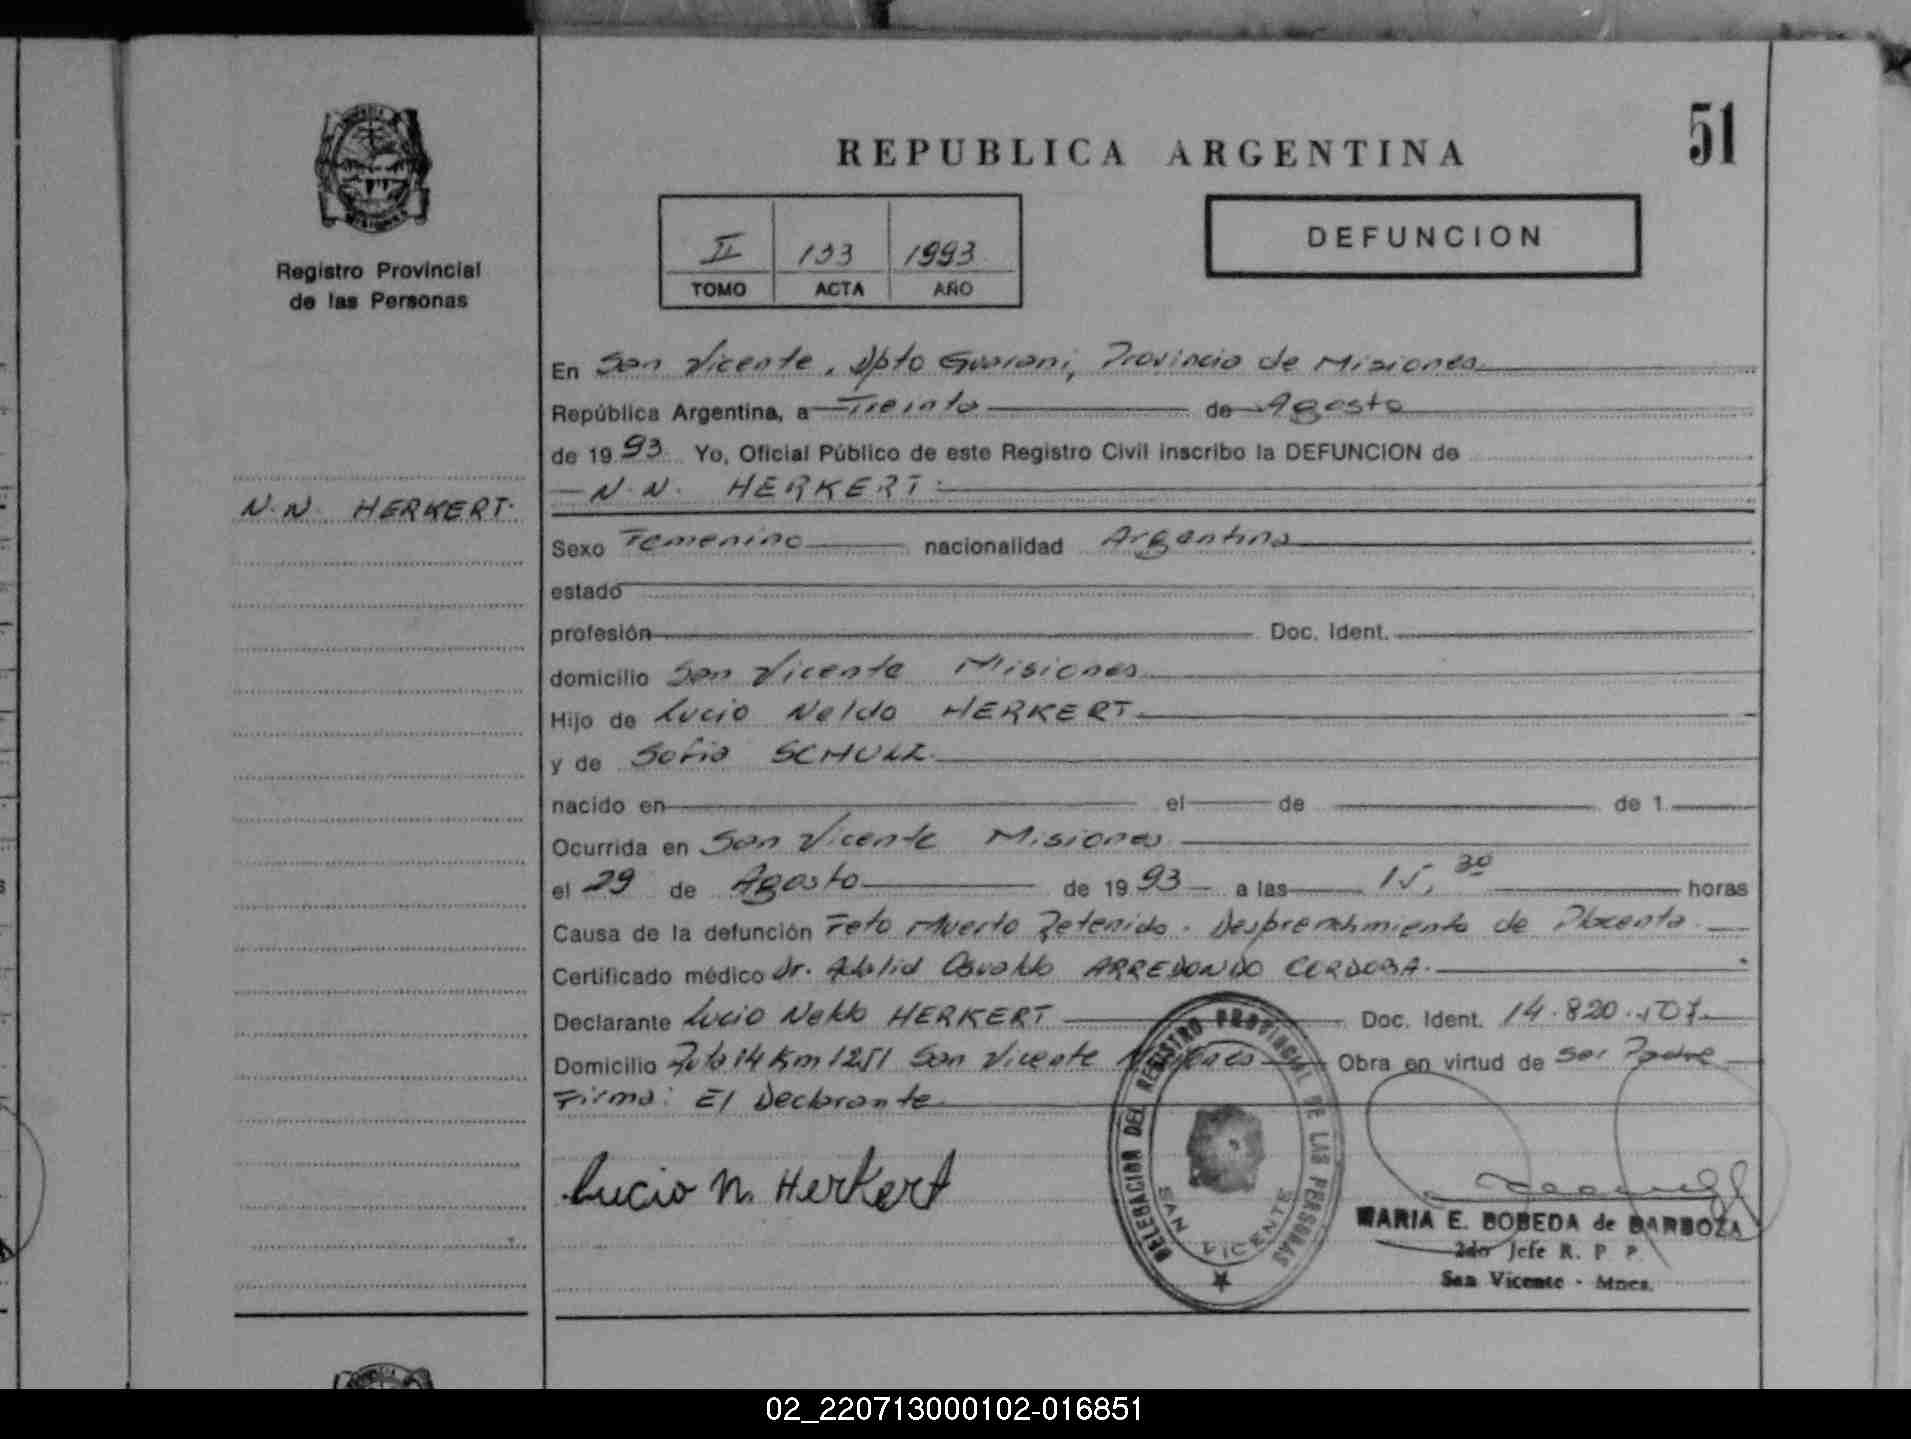 REPUBLICA ARGENTINA
51
Registro Provincial
de las Personas
II 133 1993
TOMO ACTA AÑO
DEFUNCION
N.N. HERKERT.
En San Vicente, Dpto Guarani, Provincia de Misiones
República Argentina, a Treinta de Agosto
de 1993 Yo, Oficial Público de este Registro Civil inscribo la DEFUNCION de
N.N. HERKERT.
Sexo Femenino nacionalidad Argentina
estado
profesión Doc. Ident.
domicilio San Vicente Misiones
Hijo de Lucio Neldo HERKERT
y de Sofia SCHULZ
nacido en el de de 1
Ocurrida en San Vicente Misiones
el 29 de Agosto de 1993 a las 15,30 horas
Causa de la defunción Feto Muerto Retenido. Desprendimiento de Placenta
Certificado médico Dr. Osvaldo ARREDONDO CORDOBA.
Declarante Lucio Neldo HERKERT Doc. Ident. 14.820.107
Domicilio Ruta 14 Km 1251 San Vicente Misiones Obra en virtud de ser Padre
Firma: El Declarante
Lucio N. Herkert
DELEGACION DEL REGISTRO PROVINCIAL DE LAS PERSONAS
SAN VICENTE
MARIA E. BOBEDA de BARBOZA
2do Jefe R. P. P.
San Vicente - Mnes.
02_220713000102-016851